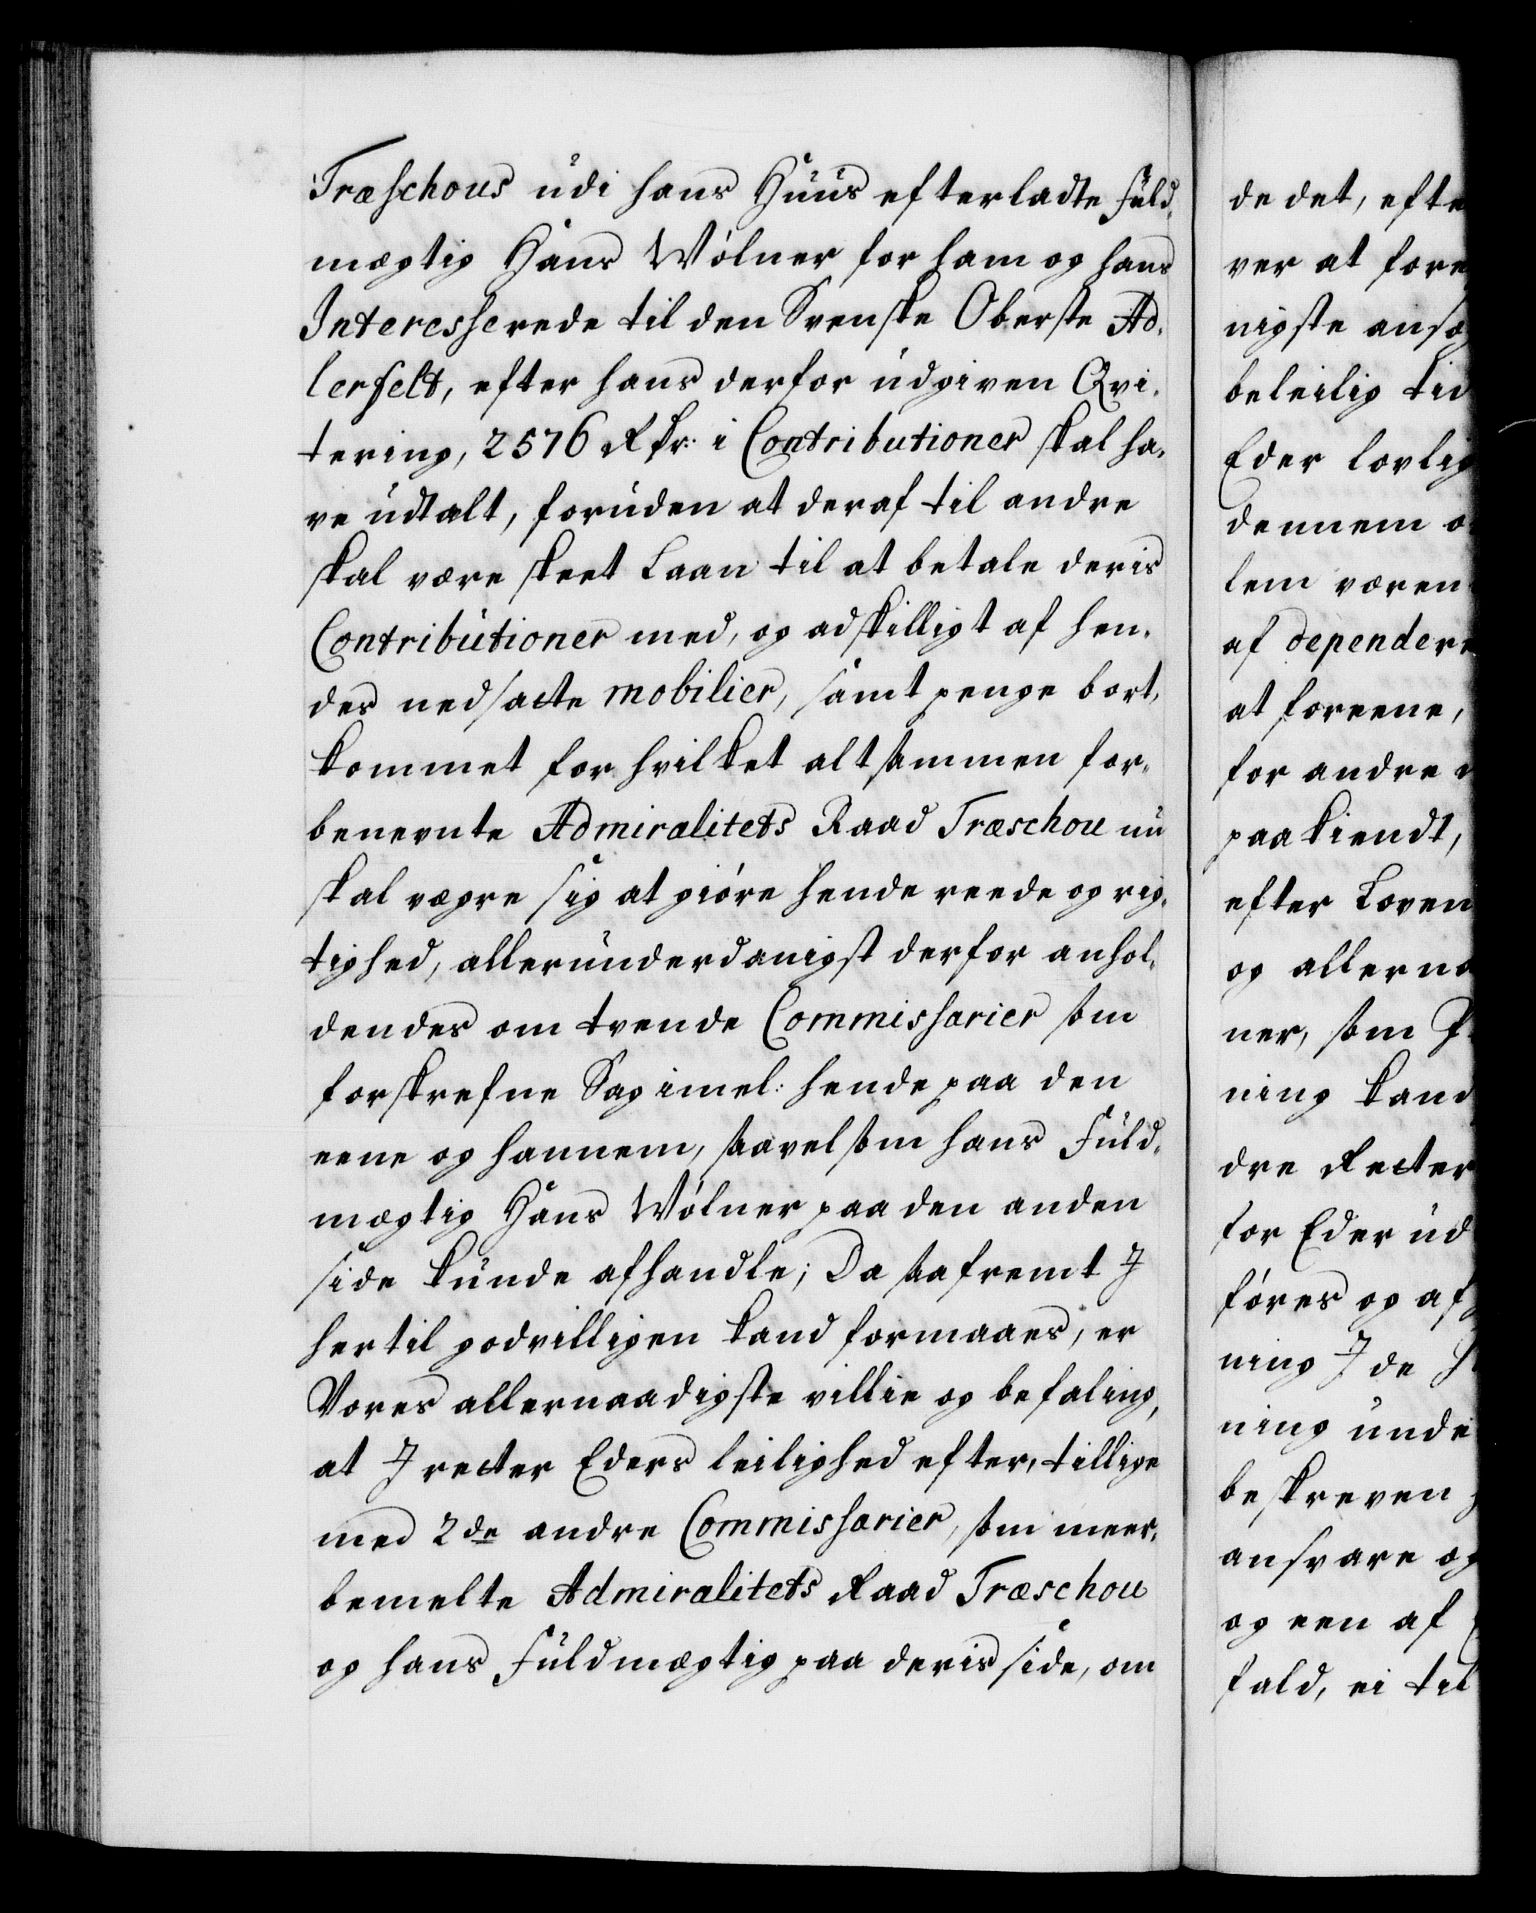 Træschous udi hans Huus efterladte Fuld-
mægtig Hans Wólner for ham og hans
Interesserede til den Svenske Oberste Ad-
lerfelt, efter hans derfor udgiven Qvi-
tering, 2576 Rdr: i Contributioner skal ha-
ve udtalt, foruden at deraf til andre
skal være skeet Laan til at betale deris
Contributioner med, og adskilligt af hen-
des nedsatte mobilier, samt penge bort-
kommet for hvilket altsammen for-
benevnte Admiralitets Raad Træschou nu
skal vægre sig at gióre hende reede og rig-
tighed, allerunderdanigst derfor anhol-
dendes om tvende Commissarier som
forskrefne Sag imel: hende paa den
eene og hannem, saavelsom hans Fuld-
mægtig Hans Wólner paa den anden
side kunde afhandle; Da saafremt I
hertil godvilligen kand formaaes, er
Vores allernaadigste villie og befaling,
at I retter Eders leilighed efter, tillige
med 2de andre Commissarier, som meer-
bemelte Admiralitets Raad Træschou
og hans Fuldmægtig paa deris side, om
de det, efte
ver at fore
nigste ansø
beleilig tid
Eder lovlig
dennem o
lem væren
af dependere
at foreene,
for andre
paakiendt,
efter Loven
og allerna
ner, som
ning kand
dre Retter
for Eder ud
fóres og af
ning I de
ning unde
beskreven
ansvare og
og een af
fald, ei til